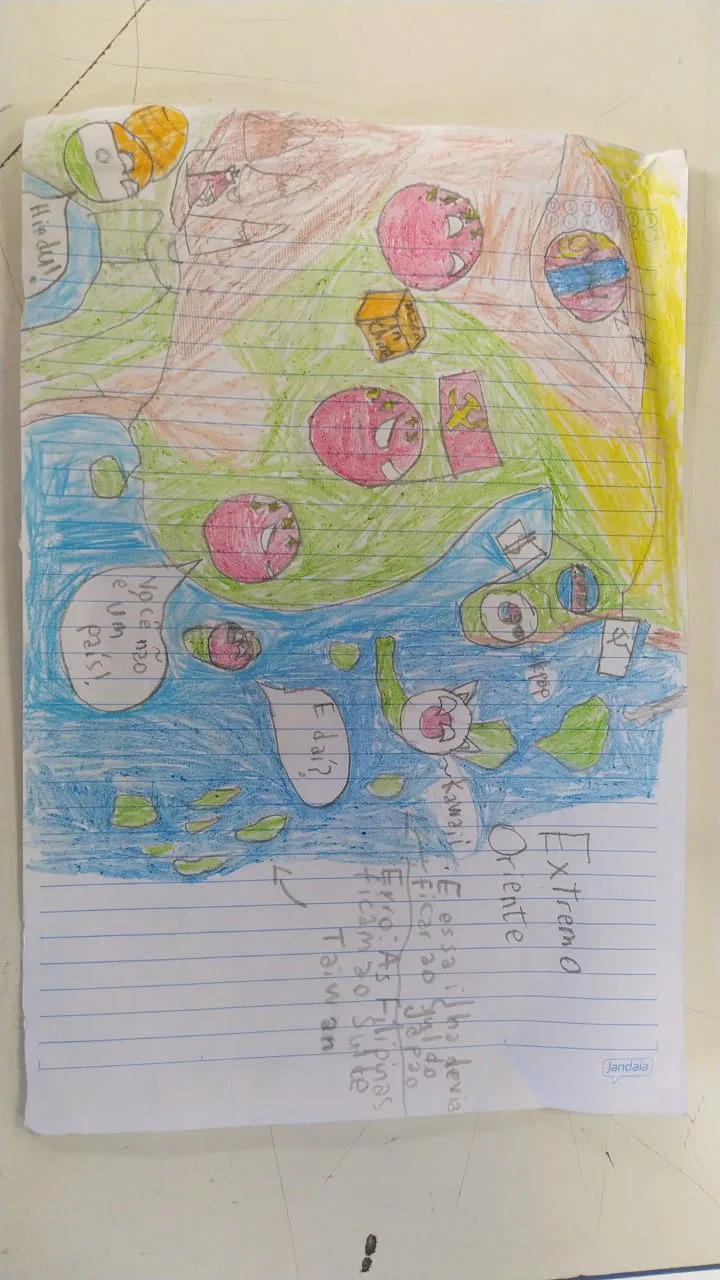 Extremo
Oriente
E essa ilha devia
ficar ao sul do
Japão
Erro: As Filipinas
ficam ao sul de
Taiwan
Kawaii
E daí?
Você não
é um
país!
Hindu!
Jandaia